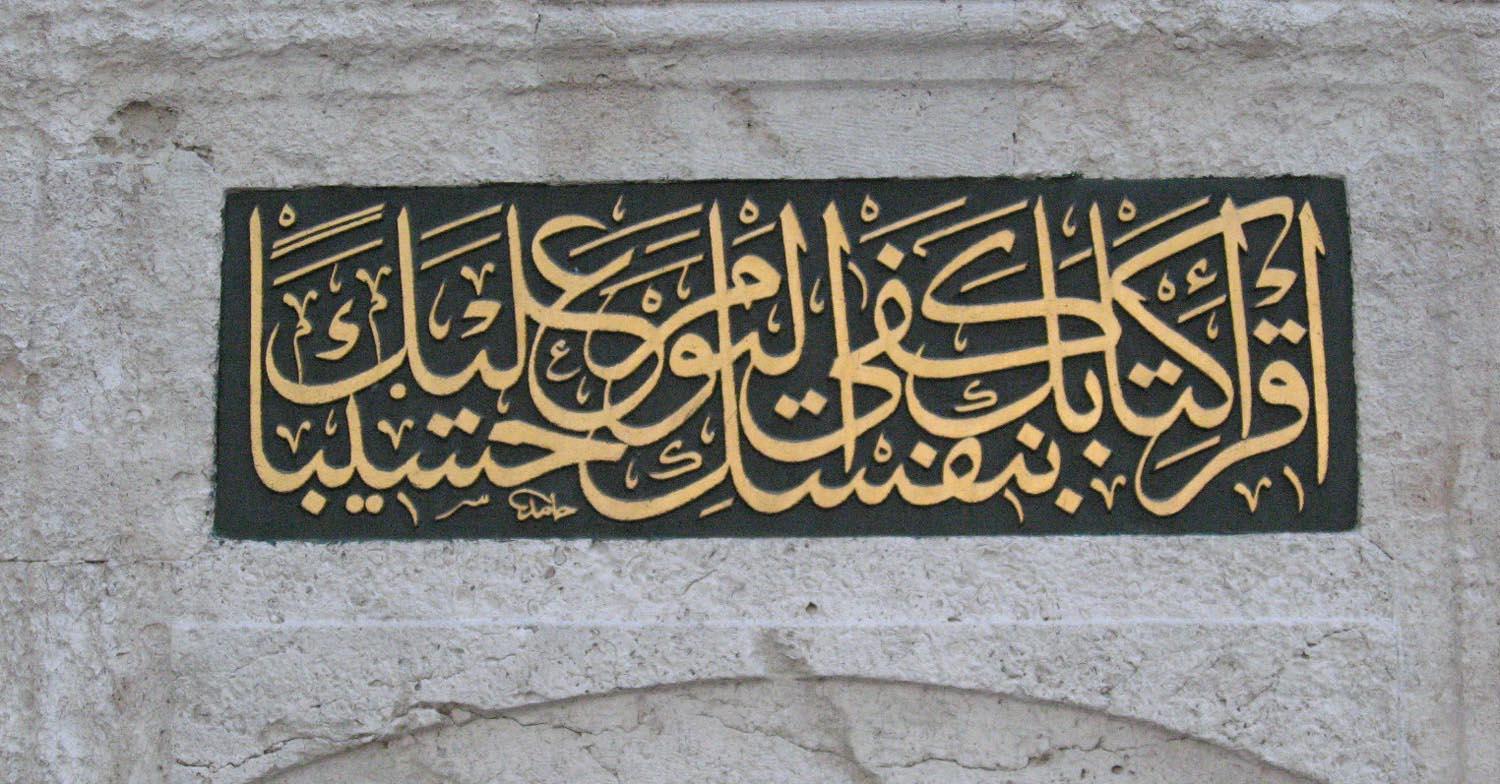 اقْرَأْ كِتَابَكَ كَفَىٰ بِنَفْسِكَ الْيَوْمَ عَلَيْكَ حَسِيبًا
حامد